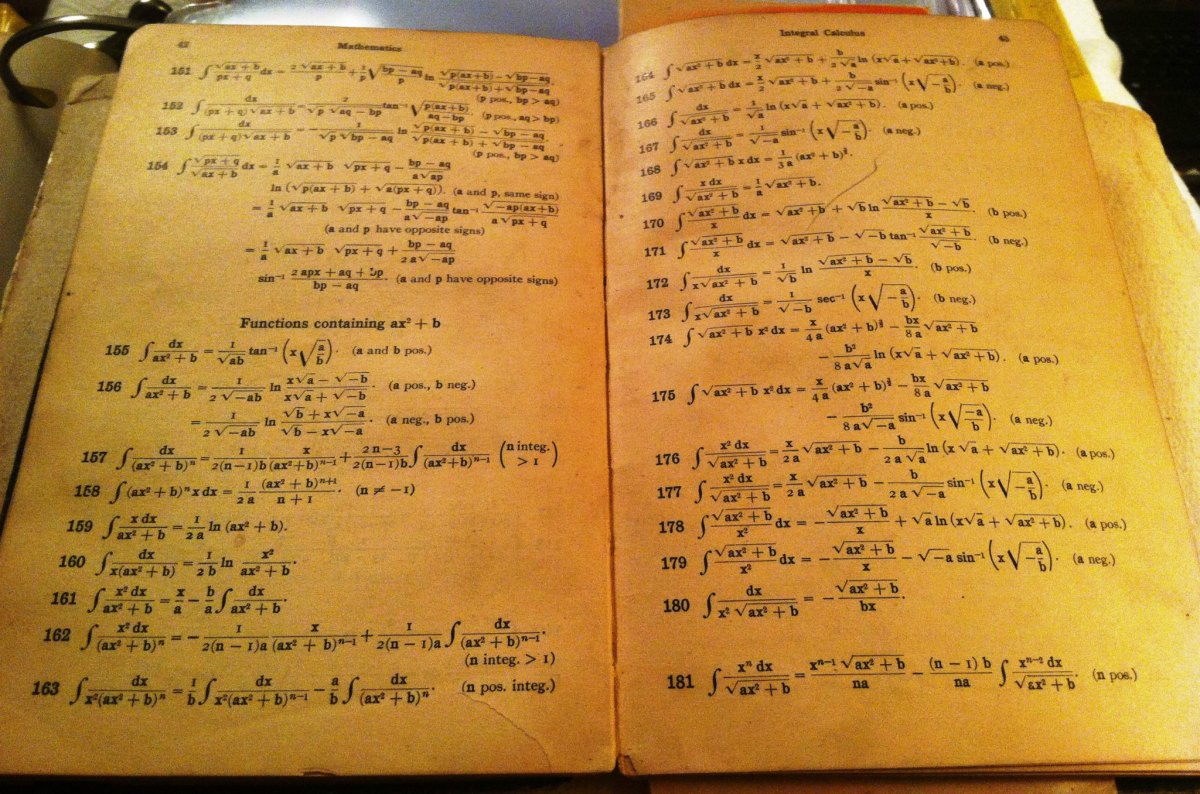 42 Mathematics
151 ∫ √(ax + b)/(px + q) dx = 2√(ax + b)/p + 1/p √((bp − aq)/p) ln (√(p(ax+b)) − √(bp−aq))/(√(p(ax+b)) + √(bp−aq))
(p pos., bp > aq)
152 ∫ dx/((px + q)√(ax + b)) = 2/(√p √(aq − bp)) tan⁻¹ √(p(ax+b)/(aq−bp)). (p pos., aq > bp)
153 ∫ dx/((px + q)√(ax + b)) = 1/(√p √(bp − aq)) ln (√(p(ax + b)) − √(bp − aq))/(√(p(ax + b)) + √(bp − aq))
(p pos., bp > aq)
154 ∫ √(px + q)/√(ax + b) dx = 1/a √(ax + b) √(px + q) − (bp − aq)/(a√(ap))
ln (√(p(ax + b)) + √(a(px + q))). (a and p, same sign)
= 1/a √(ax + b) √(px + q) − (bp − aq)/(a√(−ap)) tan⁻¹ √(−ap(ax+b))/(a√(px + q))
(a and p have opposite signs)
= 1/a √(ax + b) √(px + q) + (bp − aq)/(2a√(−ap))
sin⁻¹ (2 apx + aq + bp)/(bp − aq). (a and p have opposite signs)
Functions containing ax² + b
155 ∫ dx/(ax² + b) = 1/√(ab) tan⁻¹ (x√(a/b)). (a and b pos.)
156 ∫ dx/(ax² + b) = 1/(2√(−ab)) ln (x√a − √(−b))/(x√a + √(−b)). (a pos., b neg.)
= 1/(2√(−ab)) ln (√b + x√(−a))/(√b − x√(−a)). (a neg., b pos.)
157 ∫ dx/(ax² + b)ⁿ = 1/(2(n−1)b) x/(ax²+b)ⁿ⁻¹ + (2n−3)/(2(n−1)b) ∫ dx/(ax²+b)ⁿ⁻¹ (n integ. > 1)
158 ∫ (ax² + b)ⁿ x dx = 1/(2a) (ax² + b)ⁿ⁺¹/(n + 1). (n ≠ −1)
159 ∫ x dx/(ax² + b) = 1/(2a) ln (ax² + b).
160 ∫ dx/(x(ax² + b)) = 1/(2b) ln x²/(ax² + b).
161 ∫ x² dx/(ax² + b) = x/a − b/a ∫ dx/(ax² + b).
162 ∫ x² dx/(ax² + b)ⁿ = − 1/(2(n − 1)a) x/(ax² + b)ⁿ⁻¹ + 1/(2(n − 1)a) ∫ dx/(ax² + b)ⁿ⁻¹.
(n integ. > 1)
163 ∫ dx/(x²(ax² + b)ⁿ) = 1/b ∫ dx/(x²(ax² + b)ⁿ⁻¹) − a/b ∫ dx/(ax² + b)ⁿ. (n pos. integ.)
Integral Calculus 43
164 ∫ √(ax² + b) dx = x/2 √(ax² + b) + b/(2√a) ln (x√a + √(ax²+b)). (a pos.)
165 ∫ √(ax² + b) dx = x/2 √(ax² + b) + b/(2√(−a)) sin⁻¹ (x√(−a/b)). (a neg.)
166 ∫ dx/√(ax² + b) = 1/√a ln (x√a + √(ax² + b)). (a pos.)
167 ∫ dx/√(ax² + b) = 1/√(−a) sin⁻¹ (x√(−a/b)). (a neg.)
168 ∫ √(ax² + b) x dx = 1/(3a) (ax² + b)^(3/2).
169 ∫ x dx/√(ax² + b) = 1/a √(ax² + b).
170 ∫ √(ax² + b)/x dx = √(ax² + b) + √b ln (√(ax² + b) − √b)/x. (b pos.)
171 ∫ √(ax² + b)/x dx = √(ax² + b) − √(−b) tan⁻¹ √(ax² + b)/√(−b). (b neg.)
172 ∫ dx/(x√(ax² + b)) = 1/√b ln (√(ax² + b) − √b)/x. (b pos.)
173 ∫ dx/(x√(ax² + b)) = 1/√(−b) sec⁻¹ (x√(−a/b)). (b neg.)
174 ∫ √(ax² + b) x² dx = x/(4a) (ax² + b)^(3/2) − bx/(8a) √(ax² + b)
− b²/(8a√a) ln (x√a + √(ax² + b)). (a pos.)
175 ∫ √(ax² + b) x² dx = x/(4a) (ax² + b)^(3/2) − bx/(8a) √(ax² + b)
− b²/(8a√(−a)) sin⁻¹ (x√(−a/b)). (a neg.)
176 ∫ x² dx/√(ax² + b) = x/(2a) √(ax² + b) − b/(2a√a) ln (x√a + √(ax² + b)). (a pos.)
177 ∫ x² dx/√(ax² + b) = x/(2a) √(ax² + b) − b/(2a√(−a)) sin⁻¹ (x√(−a/b)). (a neg.)
178 ∫ √(ax² + b)/x² dx = − √(ax² + b)/x + √a ln (x√a + √(ax² + b)). (a pos.)
179 ∫ √(ax² + b)/x² dx = − √(ax² + b)/x − √(−a) sin⁻¹ (x√(−a/b)). (a neg.)
180 ∫ dx/(x²√(ax² + b)) = − √(ax² + b)/(bx).
181 ∫ xⁿ dx/√(ax² + b) = xⁿ⁻¹√(ax² + b)/(na) − (n − 1) b/(na) ∫ xⁿ⁻² dx/√(ax² + b). (n pos.)